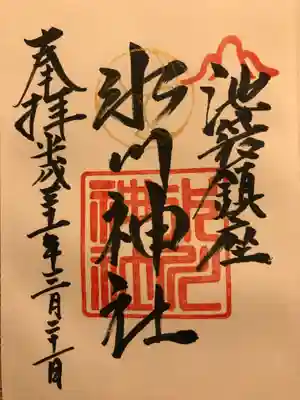 池袋鎮座
氷川神社
奉拝 平成三十一年三月二十一日
氷川
神社